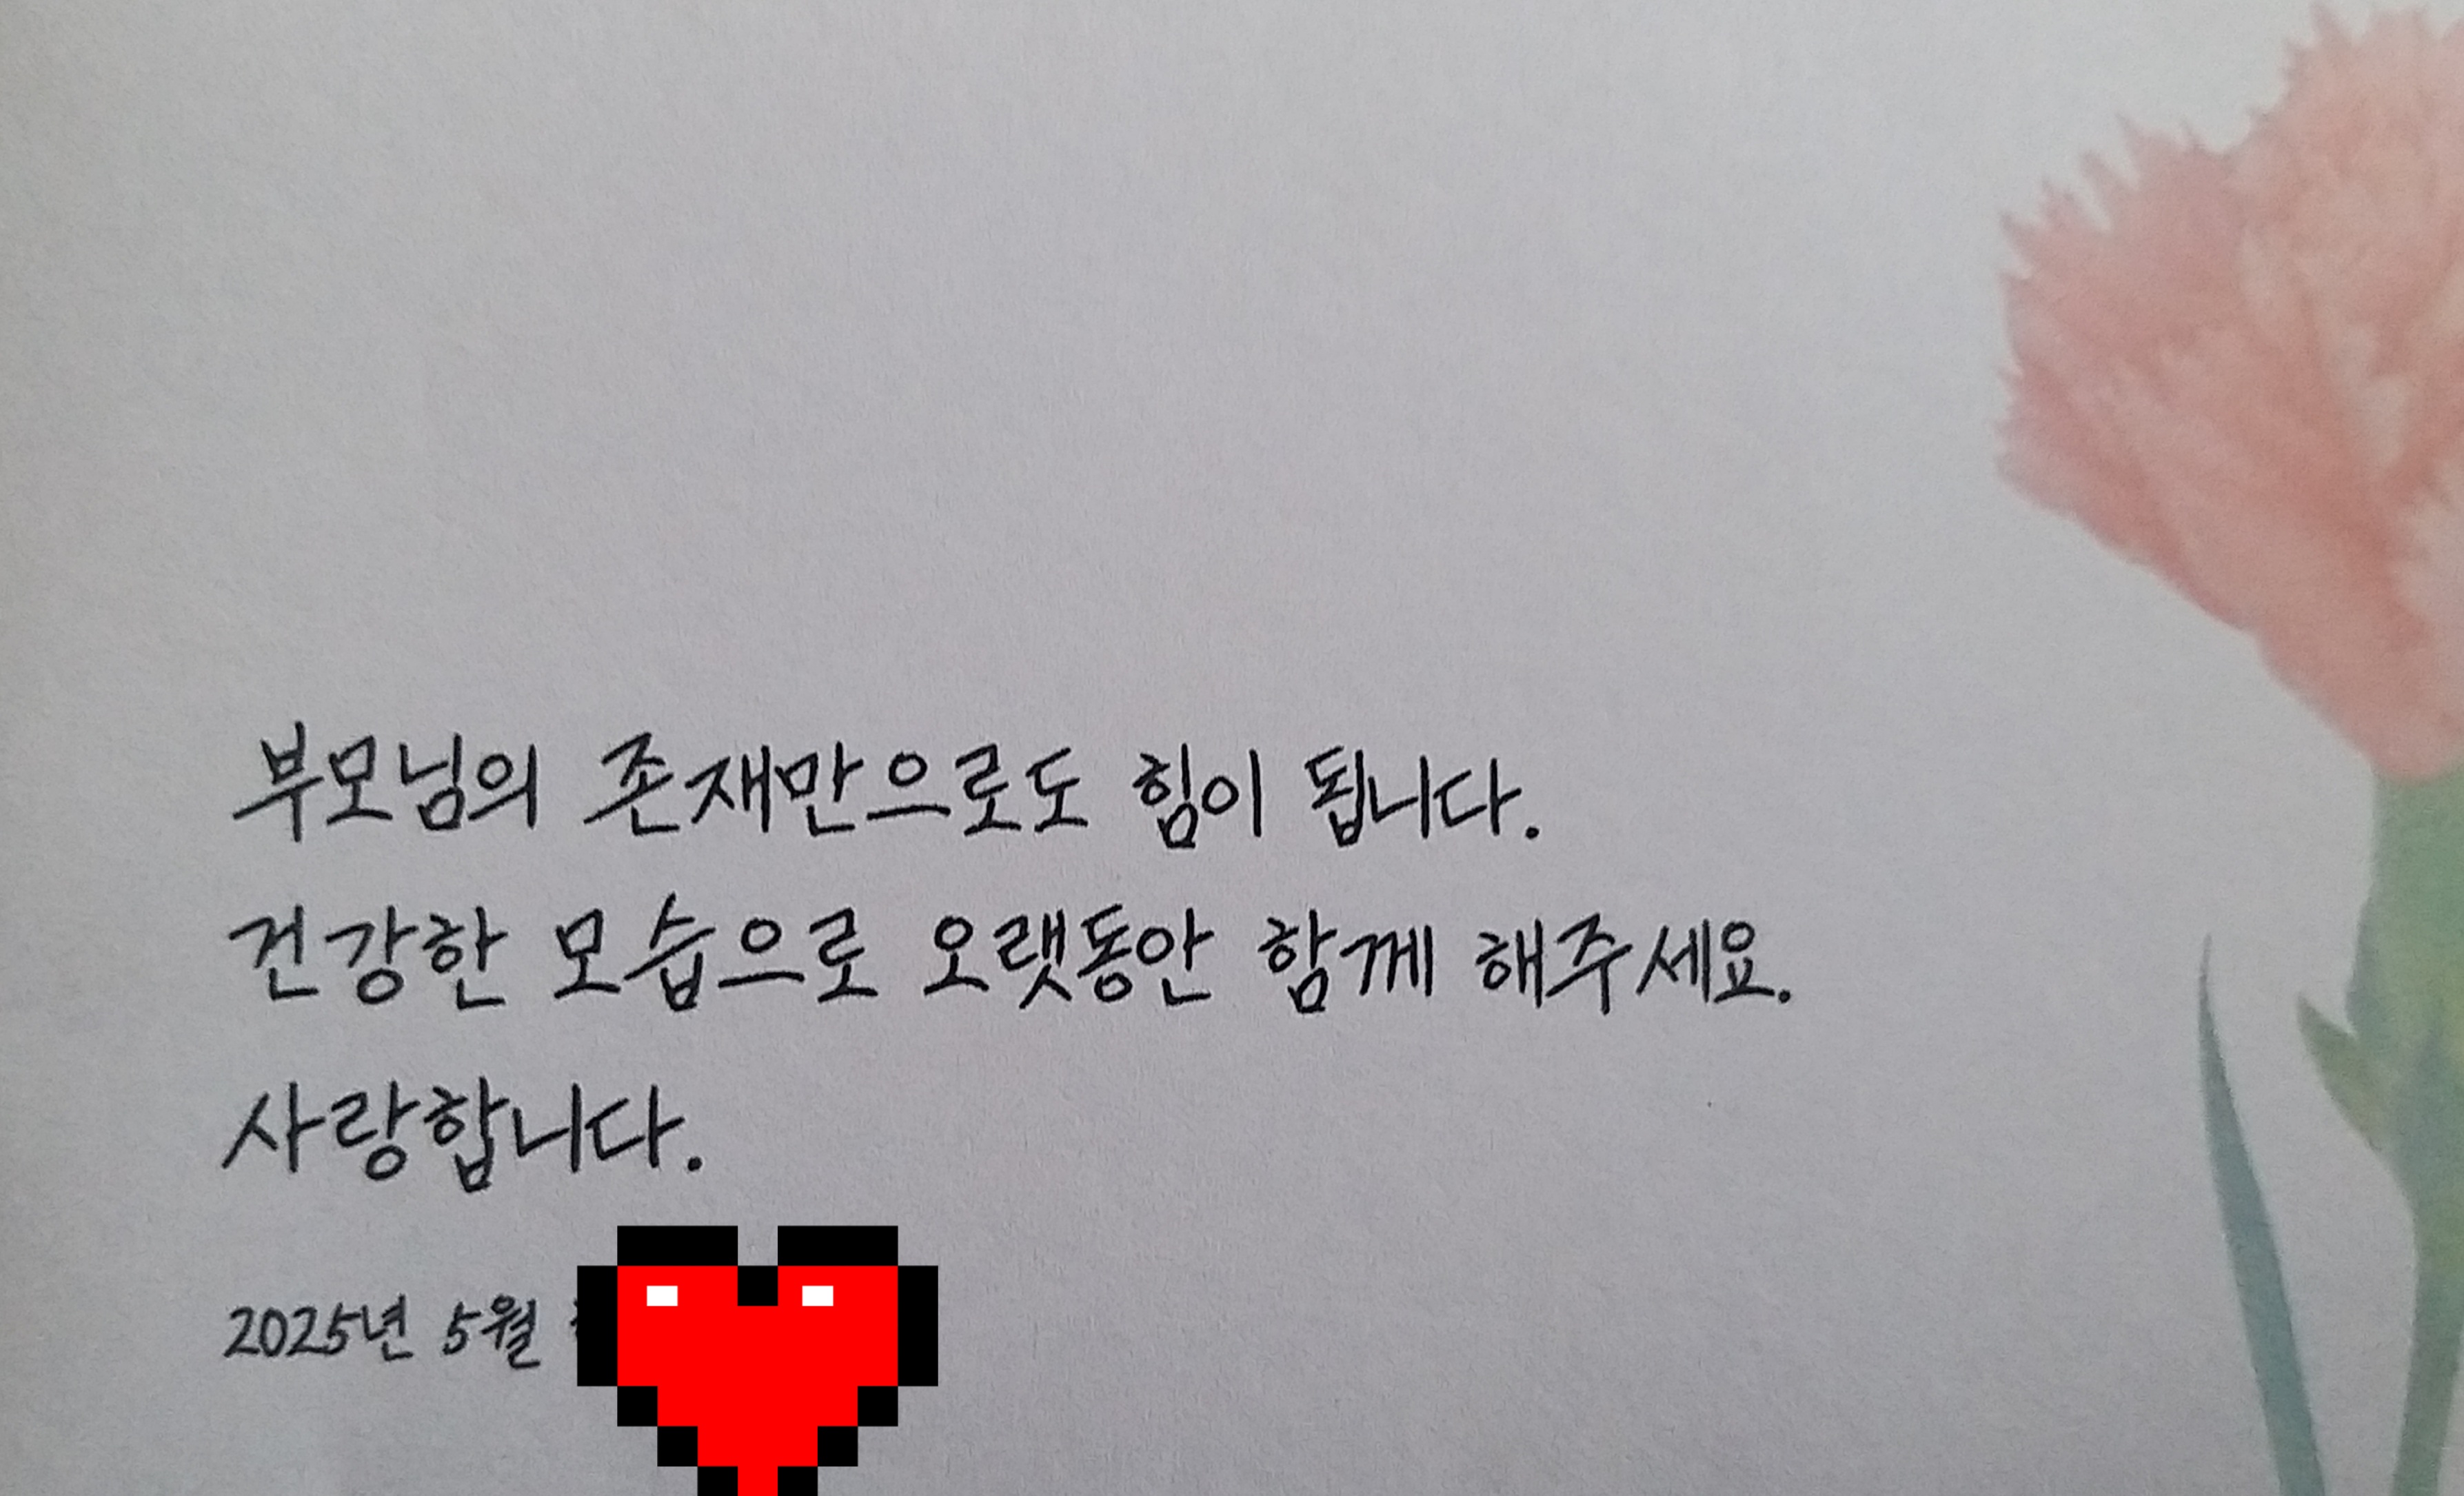 부모님의 존재만으로도 힘이 됩니다.
건강한 모습으로 오랫동안 함께 해주세요.
사랑합니다.
2025년 5월